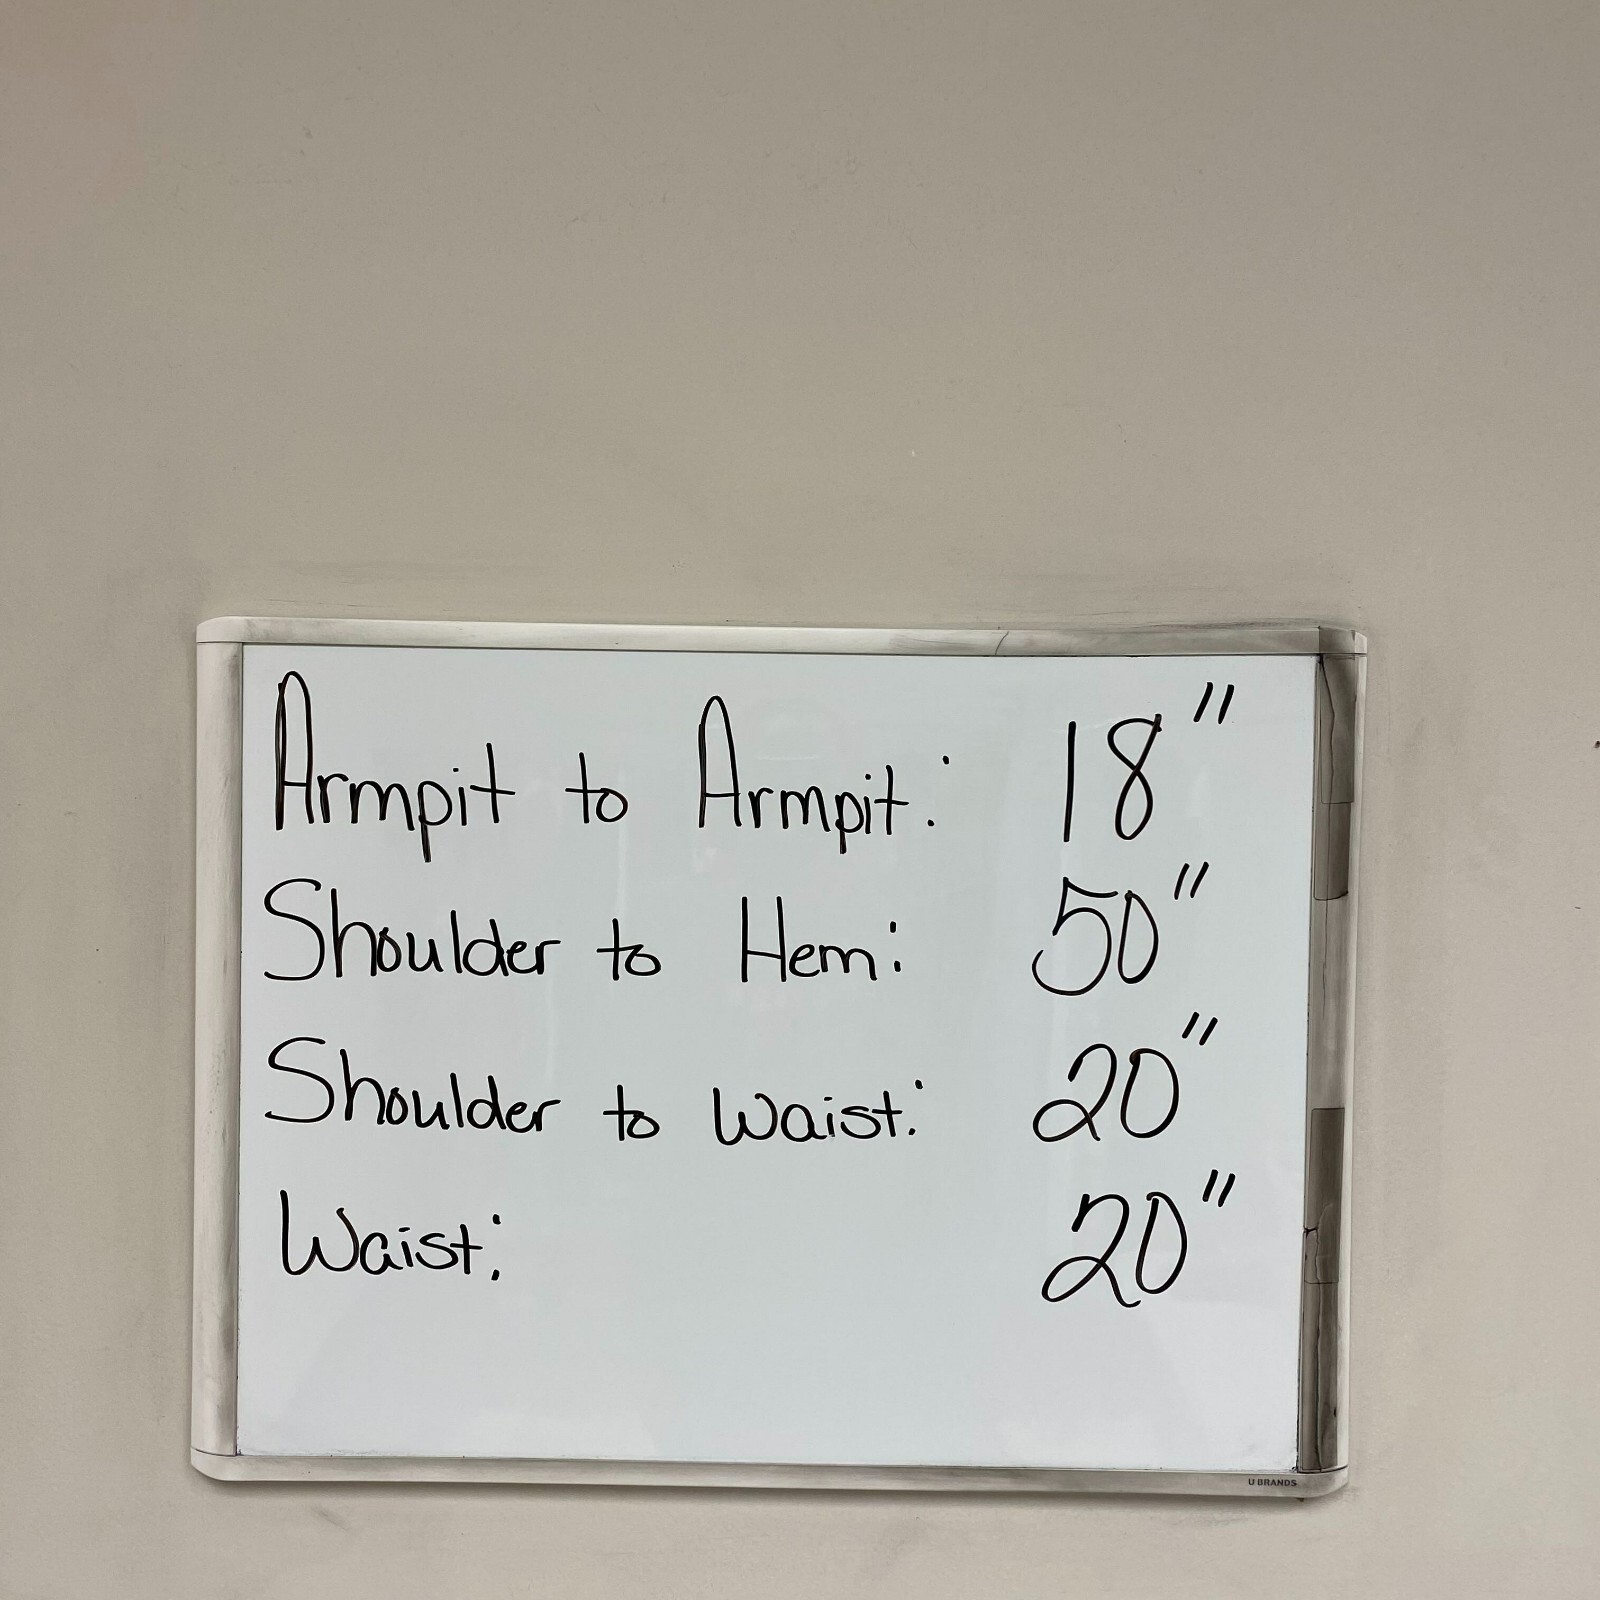 Armpit to Armpit: 18"
Shoulder to Hem: 50"
Shoulder to Waist: 20"
Waist: 20"
U BRANDS